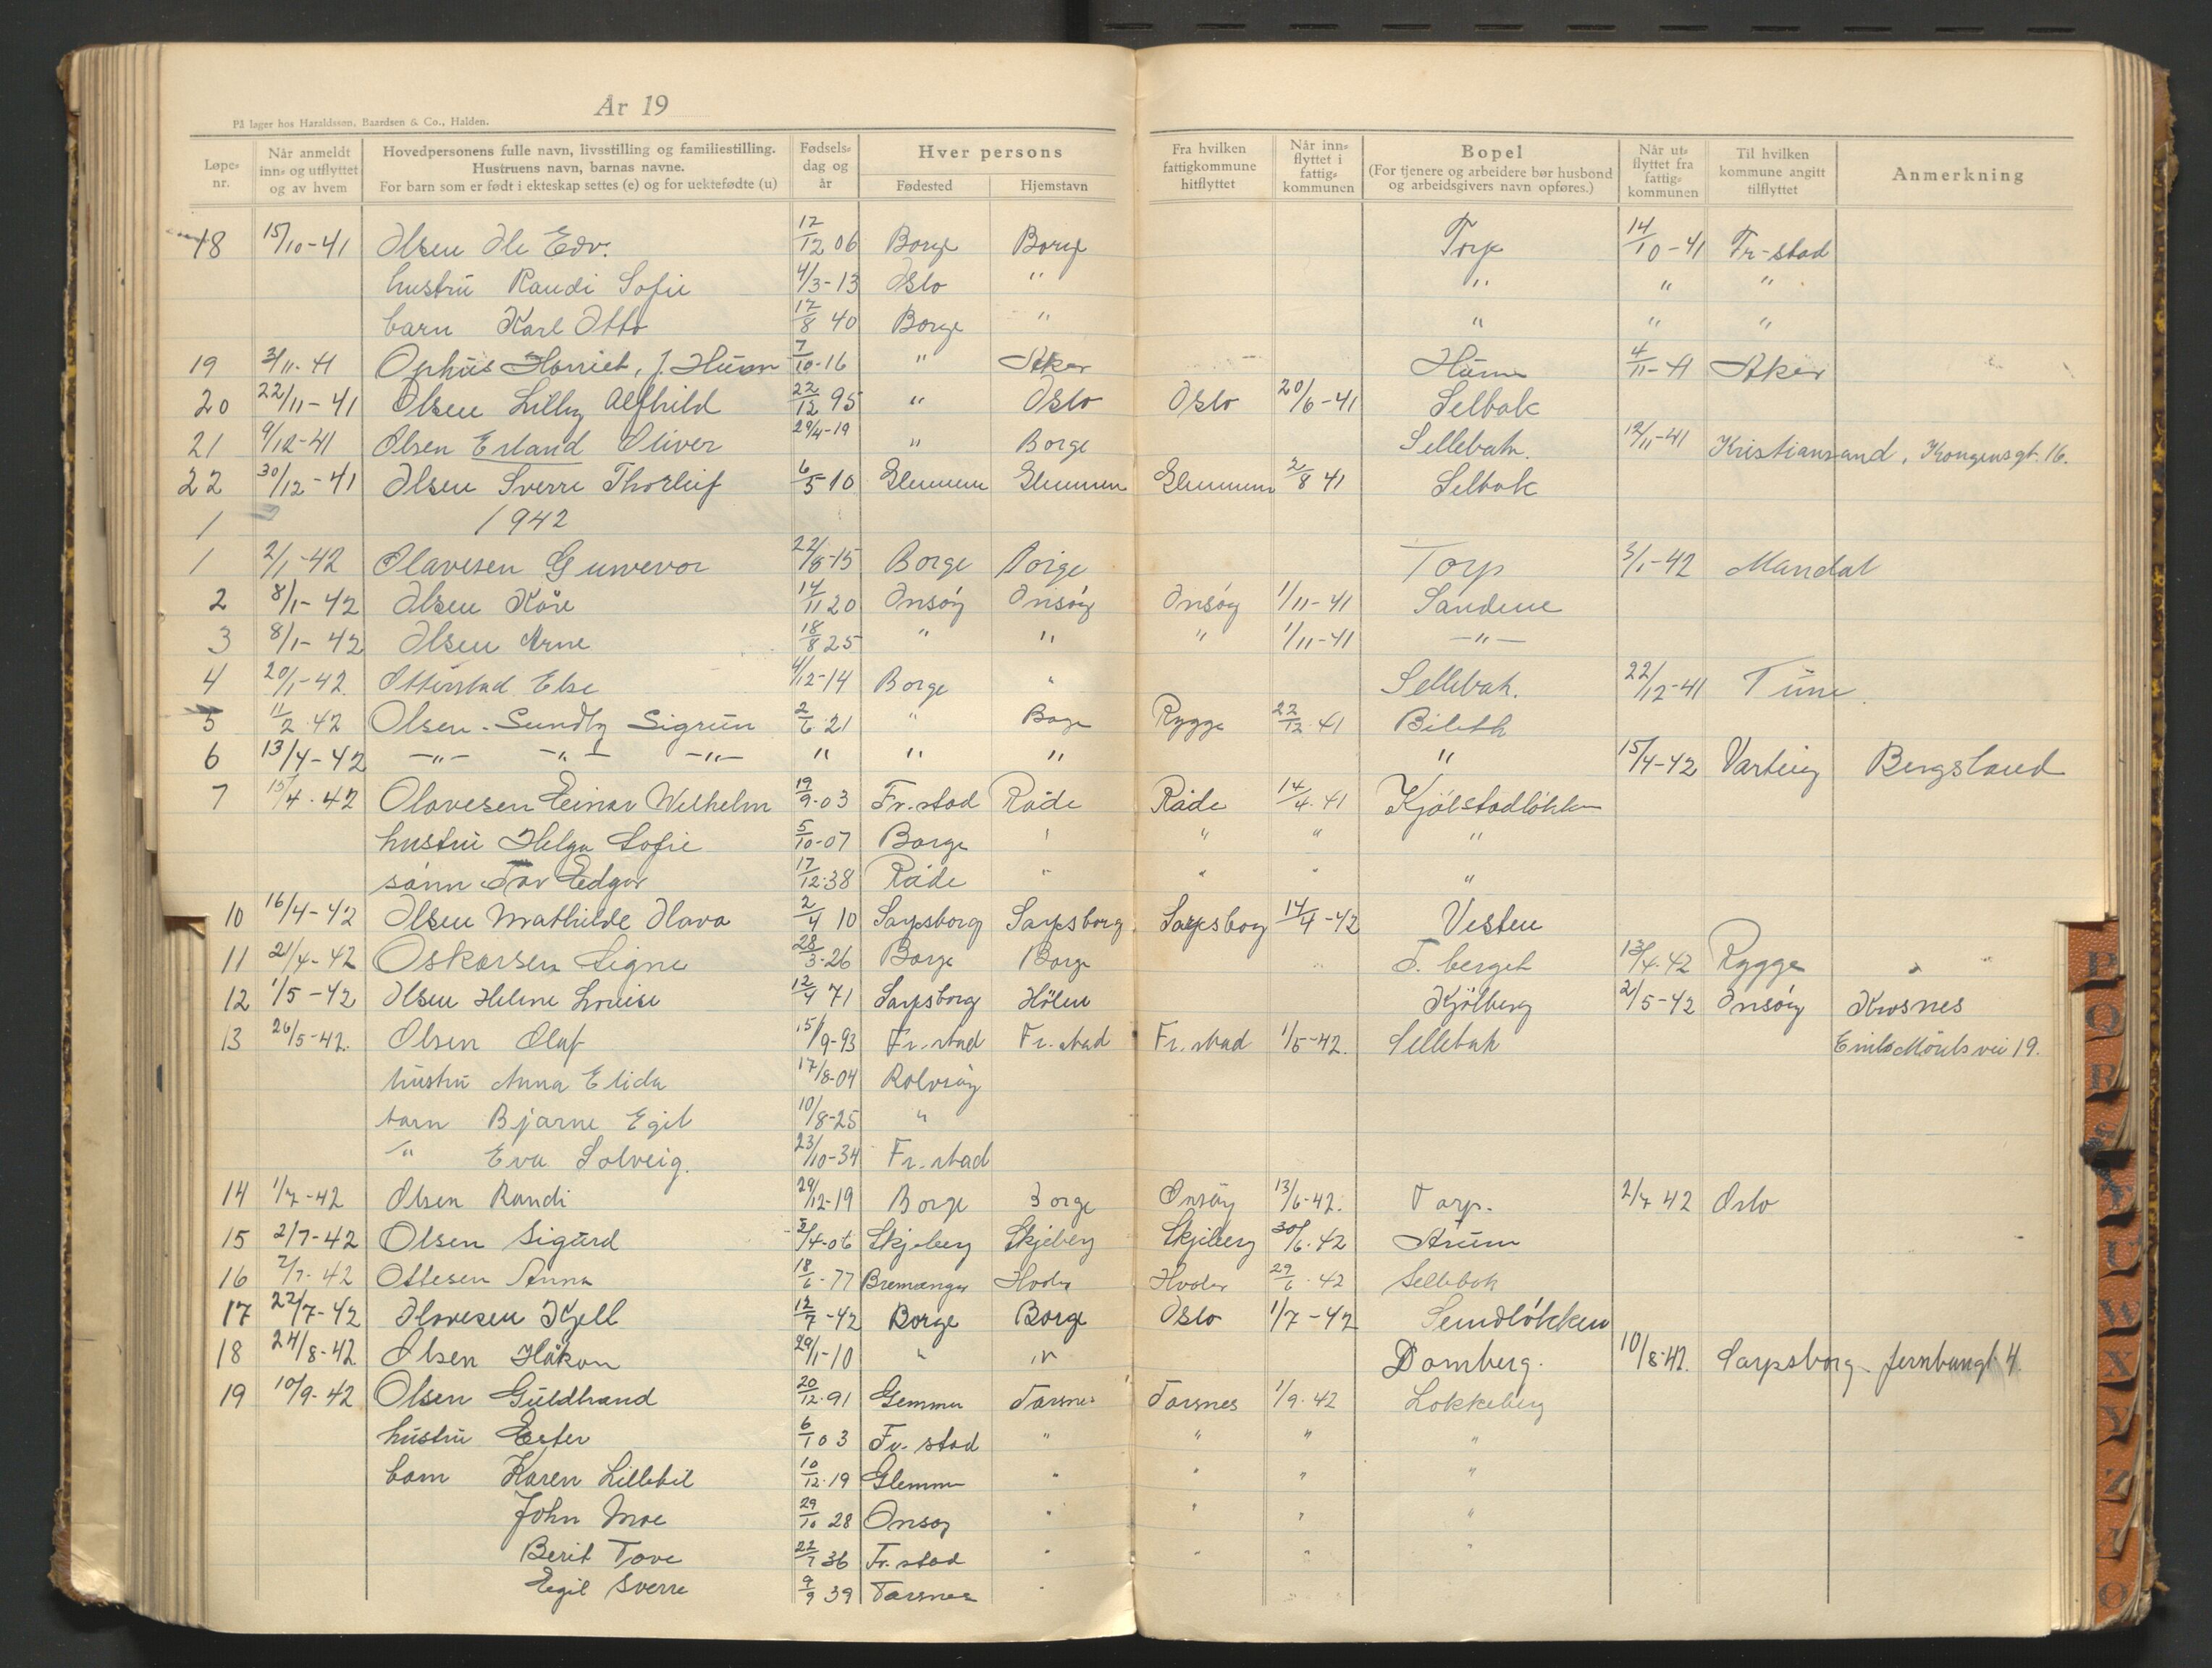 År 19
På lager hos Haraldsson, Baardsen & Co., Halden.
Løpe-nr. Når anmeldt inn- og utflyttet og av hvem Hovedpersonens fulle navn, livsstilling og familiestilling. Hustruens navn, barnas navne. For barn som er født i ekteskap settes (e) og for uektefødte (u) Fødsels-dag og år Hver persons Fødested Hjemstavn Fra hvilken fattigkommune hitflyttet Når inn-flyttet i fattig-kommunen Bopel (For tjenere og arbeidere bør husbond og arbeidsgivers navn opføres.) Når ut-flyttet fra fattig-kommunen Til hvilken kommune angitt tilflyttet Anmerkning
18 15/10-41 Olsen Ole Edv. 12/12 06 Borge Borge Torp 14/10-41 Fr-stad
hustru Randi Sofie 4/3-13 Oslo " " " "
barn Karl Otto 17/8 40 Borge " " " "
19 3/11-41 Ophus Harriet, f. Huun 7/10-16 " Aker Hunn 4/11-41 Aker
20 22/11-41 Olsen Lilly Alfhild 22/12 95 " Oslo Oslo 20/6-41 Selbak
21 9/12-41 Olsen Erland Oliver 29/4-19 " Borge Sellebak. 12/11-41 Kristiansand, Kongensgt. 16.
22 30/12-41 Olsen Sverre Thorleif 6/5 10 Glemmen Glemmen Glemmen 2/8 41 Selbak
1 1942
1 2/1-42 Olavesen Gunvevor 22/8-15 Borge Borge Torp 3/1-42 Mandal
2 8/1-42 Olsen Kåre 14/11 20 Onsøy Onsøy Onsøy 1/11-41 Sandene
3 8/1-42 Olsen Arne 18/8 25 " " " 1/11-41 -"-
4 20/1-42. Otterstad Else 4/12-14 Borge " Sellebak. 22/12-41 Tune.
5 11/2 42 Olsen-Sundby Sigrun 2/6 21 " Borge Rygge 22/12 41 Bileth
6 13/4-42 -"- -"- -"- " " " " 15/4-42 Varteig Bergsland
7 15/4-42 Olavesen Einar Wilhelm 19/9-03 Fr.stad Råde Råde 14/4-41 Kjølstadløkken
hustru Helga Sofie 5/10-07 Borge " " " "
sønn Tor Edgar 17/12-38 Råde " " " "
10 16/4-42 Olsen Mathilde Olava 2/4 10 Sarpsborg Sarpsborg Sarpsborg 14/4-42 Vesten
11 21/4-42 Oskarsen Signe 28/3-26 Borge Borge T. berget 13/4-42 Rygge
12 1/5-42 Olsen Helene Louise 12/4 71 Sarpsborg Hölen Kjölberg 2/5-42 Onsøy Krosnes
13 26/5-42. Olsen Olaf 15/9-93 Fr.stad Fr.stad Fr.stad 1/5-42. Sellebak Emils Mörks vei 19.
hustru Anna Elida 17/8-04 Rolvsøy
barn Bjarne Egil 10/8-25 "
" Eva Solveig. 23/10-34 Fr.stad
14 1/7-42 Olsen Randi 29/12-19 Borge Borge Onsøy 13/6-42. Torp. 2/7 42 Oslo
15 2/7-42 Olsen Sigurd 5/4-06 Skjeberg Skjeberg Skjeberg 30/6-42 Årum
16 2/7-42 Ottesen Anna 18/6-77 Bremanger Hvaler Hvaler 29/6-42 Sellebak
17 22/7-42 Olavesen Kjell 12/7-42 Borge Borge Oslo 1/7-42 Sundløkken
18 24/8-42 Olsen Håkon 29/1-10 " " Domberg. 10/8-42. Sarpsborg Jernbangt 4.
19 10/9-42 Olsen Guldbrand 20/12-91 Gemmen Torsnes Torsnes 1/9-42 Lökkeberg
hustru Ester 6/1 03 Fr.stad " " " "
barn Karen Lillebil 10/12-19 Glemmen " " " "
John Moe 29/10 28 Onsøy " " " "
Berit Tove 22/7 36 Fr.stad " " " "
Egil Sverre 9/9 39 Torsnes "
P
Q
R
U
W
X
Y
Z
O